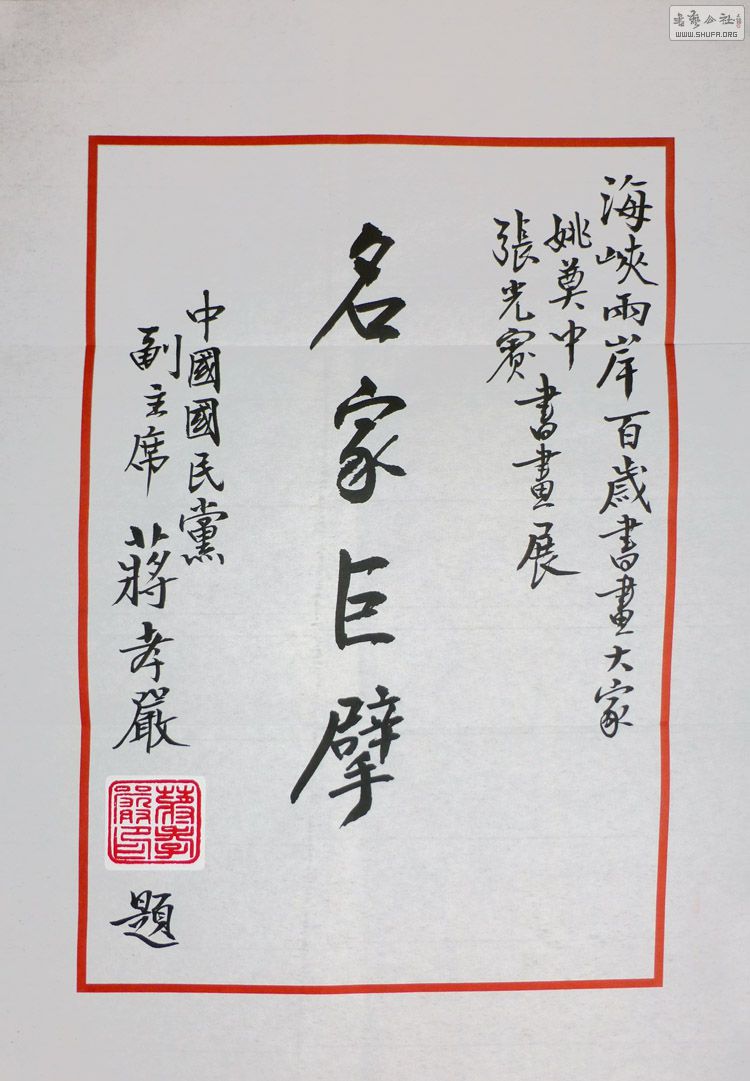 海峽兩岸百歲書畫大家
姚奠中
張光賓
書畫展
名家巨擘
中國國民黨
副主席 蔣孝嚴
蔣孝嚴印
題
書藝公社
WWW.SHUFA.ORG